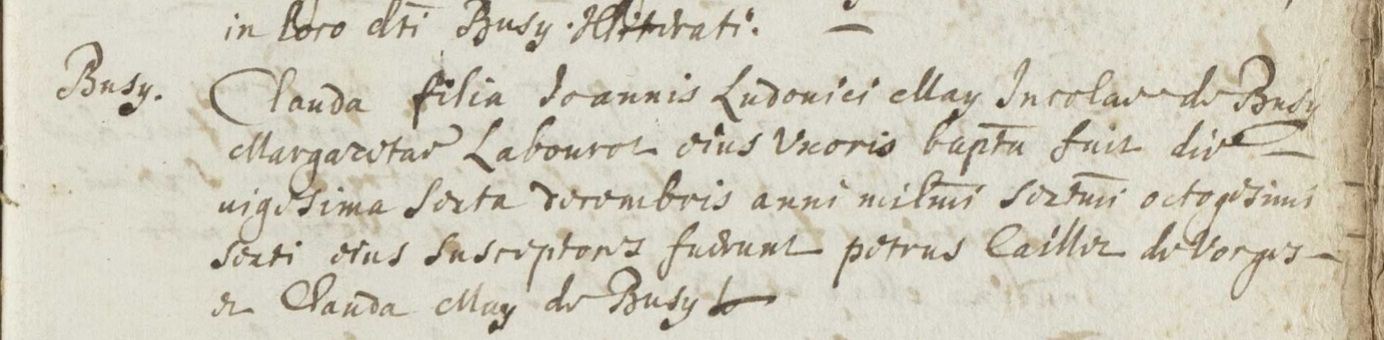 in loco dti Busy. Illiterati.
Busy. Clauda filia Joannis Ludovici May Incolae de Busy
Margaretae Labourot eius Vxoris bapta fuit die
uigesima sexta decembris anni millmi sextmi octogesimi
sexti eius susceptores fuerunt petrus Caillet de Vorges
et Clauda May de Busy